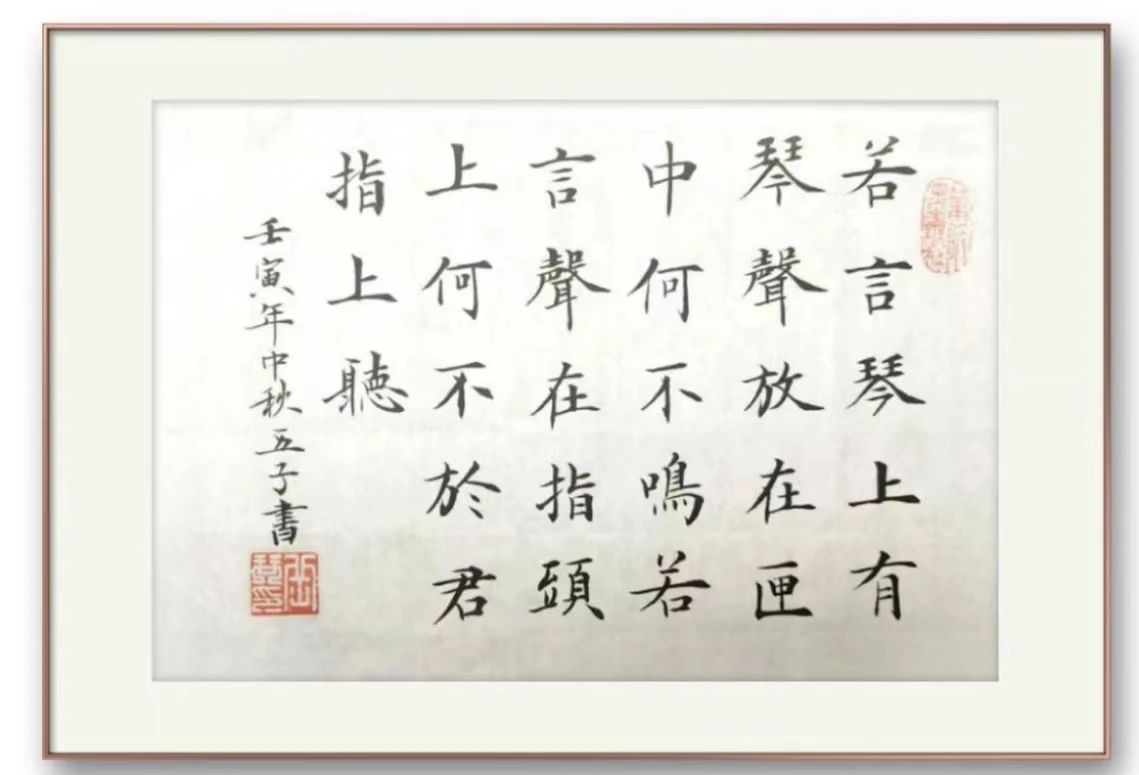 若言琴上有
琴聲放在匣
中何不鳴若
言聲在指頭
上何不於君
指上聽
壬寅年中秋五子書